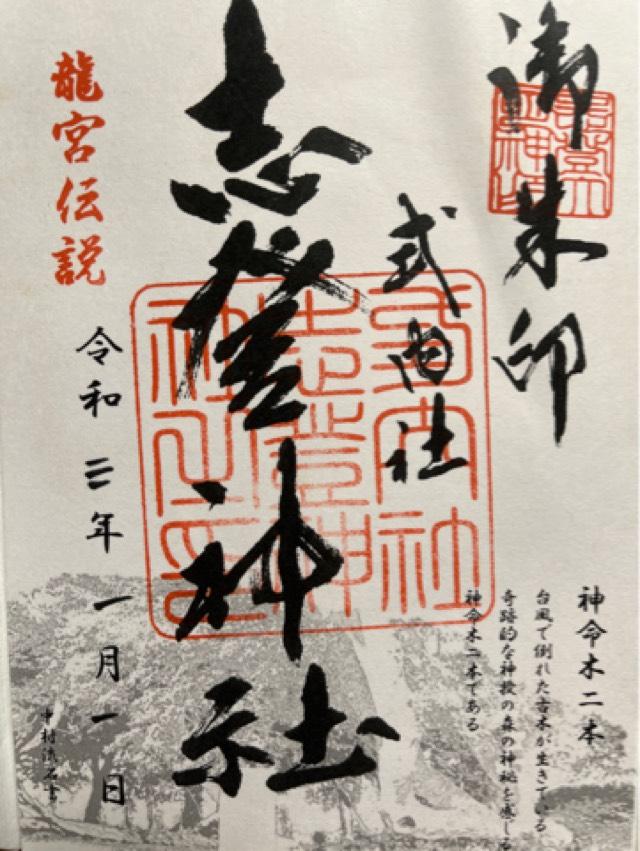 御朱印
式内社
志登神社
龍宮伝説
令和三年一月一日
神命木二本
台風で倒れた古木が生きている
奇跡的な神授の森の神秘を感じる
神命木二本である
式内社
志登神
社之印